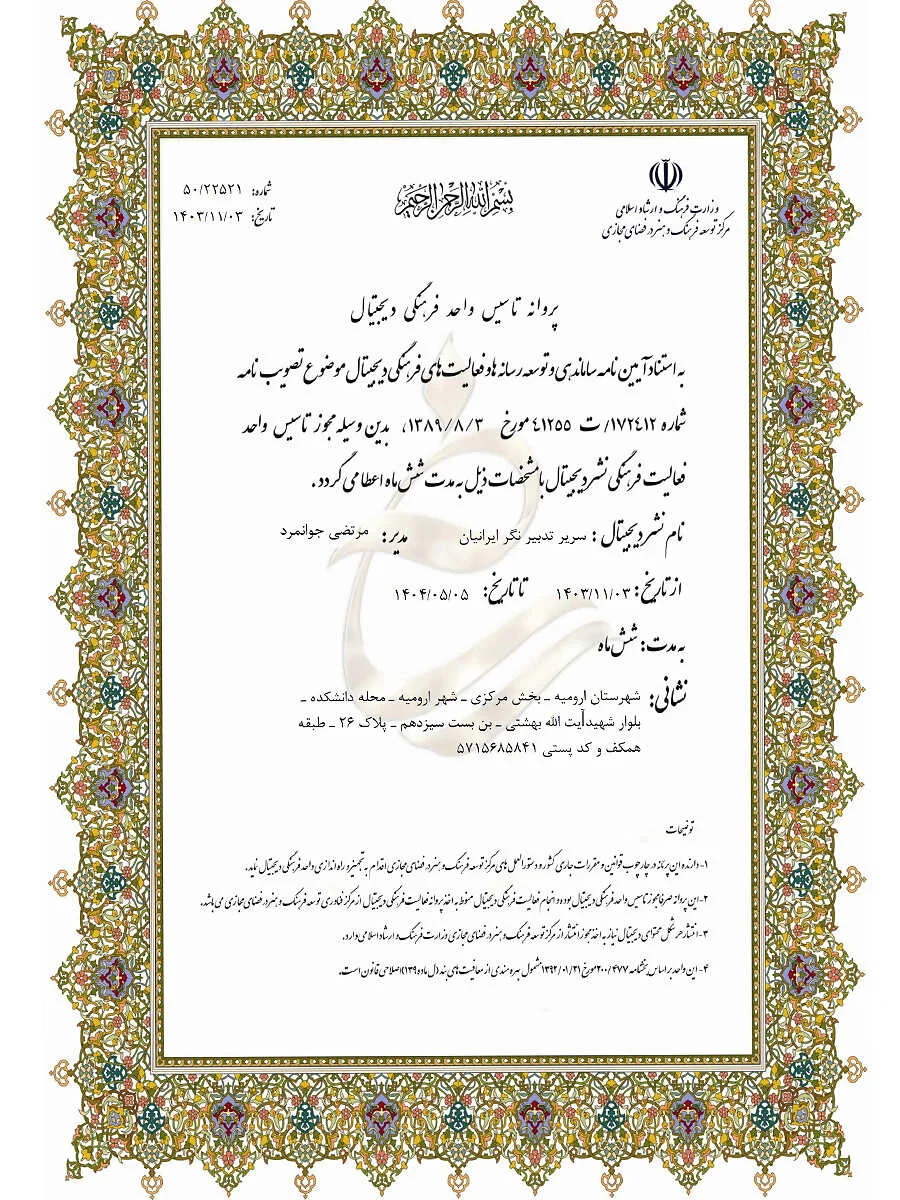 بسم الله الرحمن الرحیم
وزارت فرهنگ و ارشاد اسلامی
مرکز توسعه فرهنگ و هنر در فضای مجازی
شماره: ۵۰/۲۲۵۲۱
تاریخ: ۱۴۰۳/۱۱/۰۳
پروانه تاسیس واحد فرهنگی دیجیتال
به استناد آیین نامه ساماندهی و توسعه رسانه ها و فعالیت های فرهنگی دیجیتال موضوع تصویب نامه
شماره ۱۷۲۴۱۲/ ت ٤١٢٥٥ مورخ ۱۳۸۹/۸/۳، بدین وسیله مجوز تاسیس واحد
فعالیت فرهنگی نشر دیجیتال با مشخصات ذیل به مدت شش ماه اعطا می گردد.
نام نشر دیجیتال: سریر تدبیر نگر ایرانیان مدیر: مرتضی جوانمرد
از تاریخ: ۱۴۰۳/۱۱/۰۳ تا تاریخ: ۱۴۰۴/۰۵/۰۵
به مدت: شش ماه
نشانی: شهرستان ارومیه ـ بخش مرکزی ـ شهر ارومیه ـ محله دانشکده ـ
بلوار شهیدآیت الله بهشتی ـ بن بست سیزدهم ـ پلاک ۲۶ ـ طبقه
همکف و کد پستی ۵۷۱۵۶۸۵۸۴۱
توضیحات
۱- دارنده این پروانه در چارچوب قوانین و مقررات جاری کشور و دستورالعمل های مرکز توسعه فرهنگ و هنر در فضای مجازی اقدام به تجهیز و راه اندازی واحد فرهنگی دیجیتال نماید.
۲- این پروانه صرفا مجوز تاسیس واحد فرهنگی دیجیتال بوده و انجام فعالیت فرهنگی دیجیتال منوط به اخذ پروانه فعالیت فرهنگی دیجیتال از مرکز فناوری توسعه فرهنگ و هنر در فضای مجازی می باشد.
۳- انتشار هر شکل محتوای دیجیتال نیاز به اخذ مجوز انتشار از مرکز توسعه فرهنگ و هنر در فضای مجازی وزارت فرهنگ و ارشاد اسلامی دارد.
۴- این واحد بر اساس بخشنامه ۲۰۰/۴۷۷ مورخ ۱۳۹۲/۰۱/۲۱ مشمول بهره مندی از معافیت های بند (ل ماده ۱۳۹) اصلاحی قانون است.